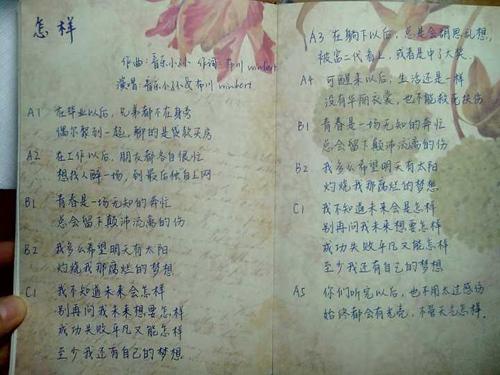 怎样
作曲：音乐小小 作词：布川 winbert
演唱：音乐小小 & 布川 winbert
A1 在毕业以后，兄弟都不在身旁
偶尔聚到一起，聊的是贷款买房
A2 在工作以后，朋友都各自很忙
想找人醉一场，到最后独自上网
B1 青春是一场无知的奔忙
总会留下颠沛流离的伤
B2 我多么希望明天有太阳
灼烧我那腐烂的梦想
C1 我不知道未来会怎样
别再问我未来想要怎样
成功失败平凡又能怎样
至少我还有自己的梦想
A3 在躺下以后，总是会胡思乱想，
被富二代看上，或者是中了大奖。
A4 可醒来以后，生活还是一样
没有华丽衣裳，也不能救死扶伤
B1 青春是一场无知的奔忙
总会留下颠沛流离的伤
B2 我多么希望明天有太阳
灼烧我那腐烂的梦想
C1 我不知道未来会是怎样
别再问我未来想要怎样
成功失败平凡又能怎样
至少我还有自己的梦想
A5 你们听完以后，也不用太过感伤
始终都会有光亮，不管天亮怎样.